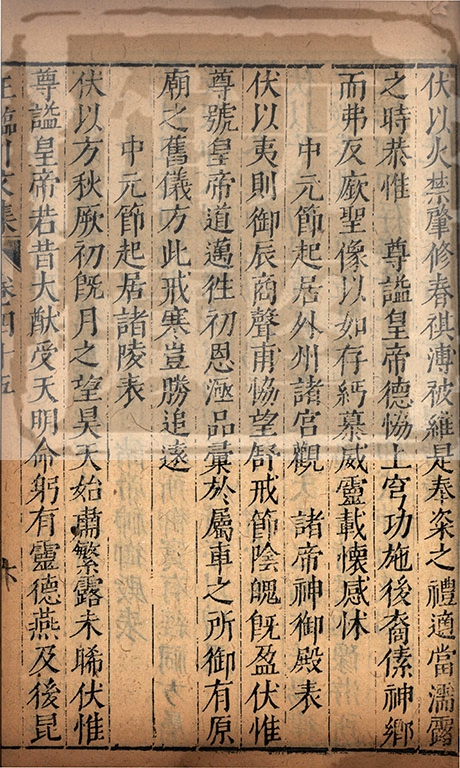 伏以火禁肇修春祺溥被維是奉粢之禮適當濡露
之時恭惟　尊謚皇帝德恊上穹功施後裔傃神鄉
而弗及厫聖像以如存緬慕威靈載懷感怵
中元節起居外州諸宮觀　諸帝神御殿表
伏以夷則御辰商聲甫恊望舒戒節陰魄旣盈伏惟
尊號皇帝道邁徃初恩涵品彚於屬車之所御有原
廟之舊儀方此戒寒豈勝追遠
中元節起居諸陵表
伏以方秋厥初旣月之望昊天始肅繁露未晞伏惟
尊謚皇帝若昔大猷受天明命躬有靈德燕及後昆
王臨川文集　卷四十五